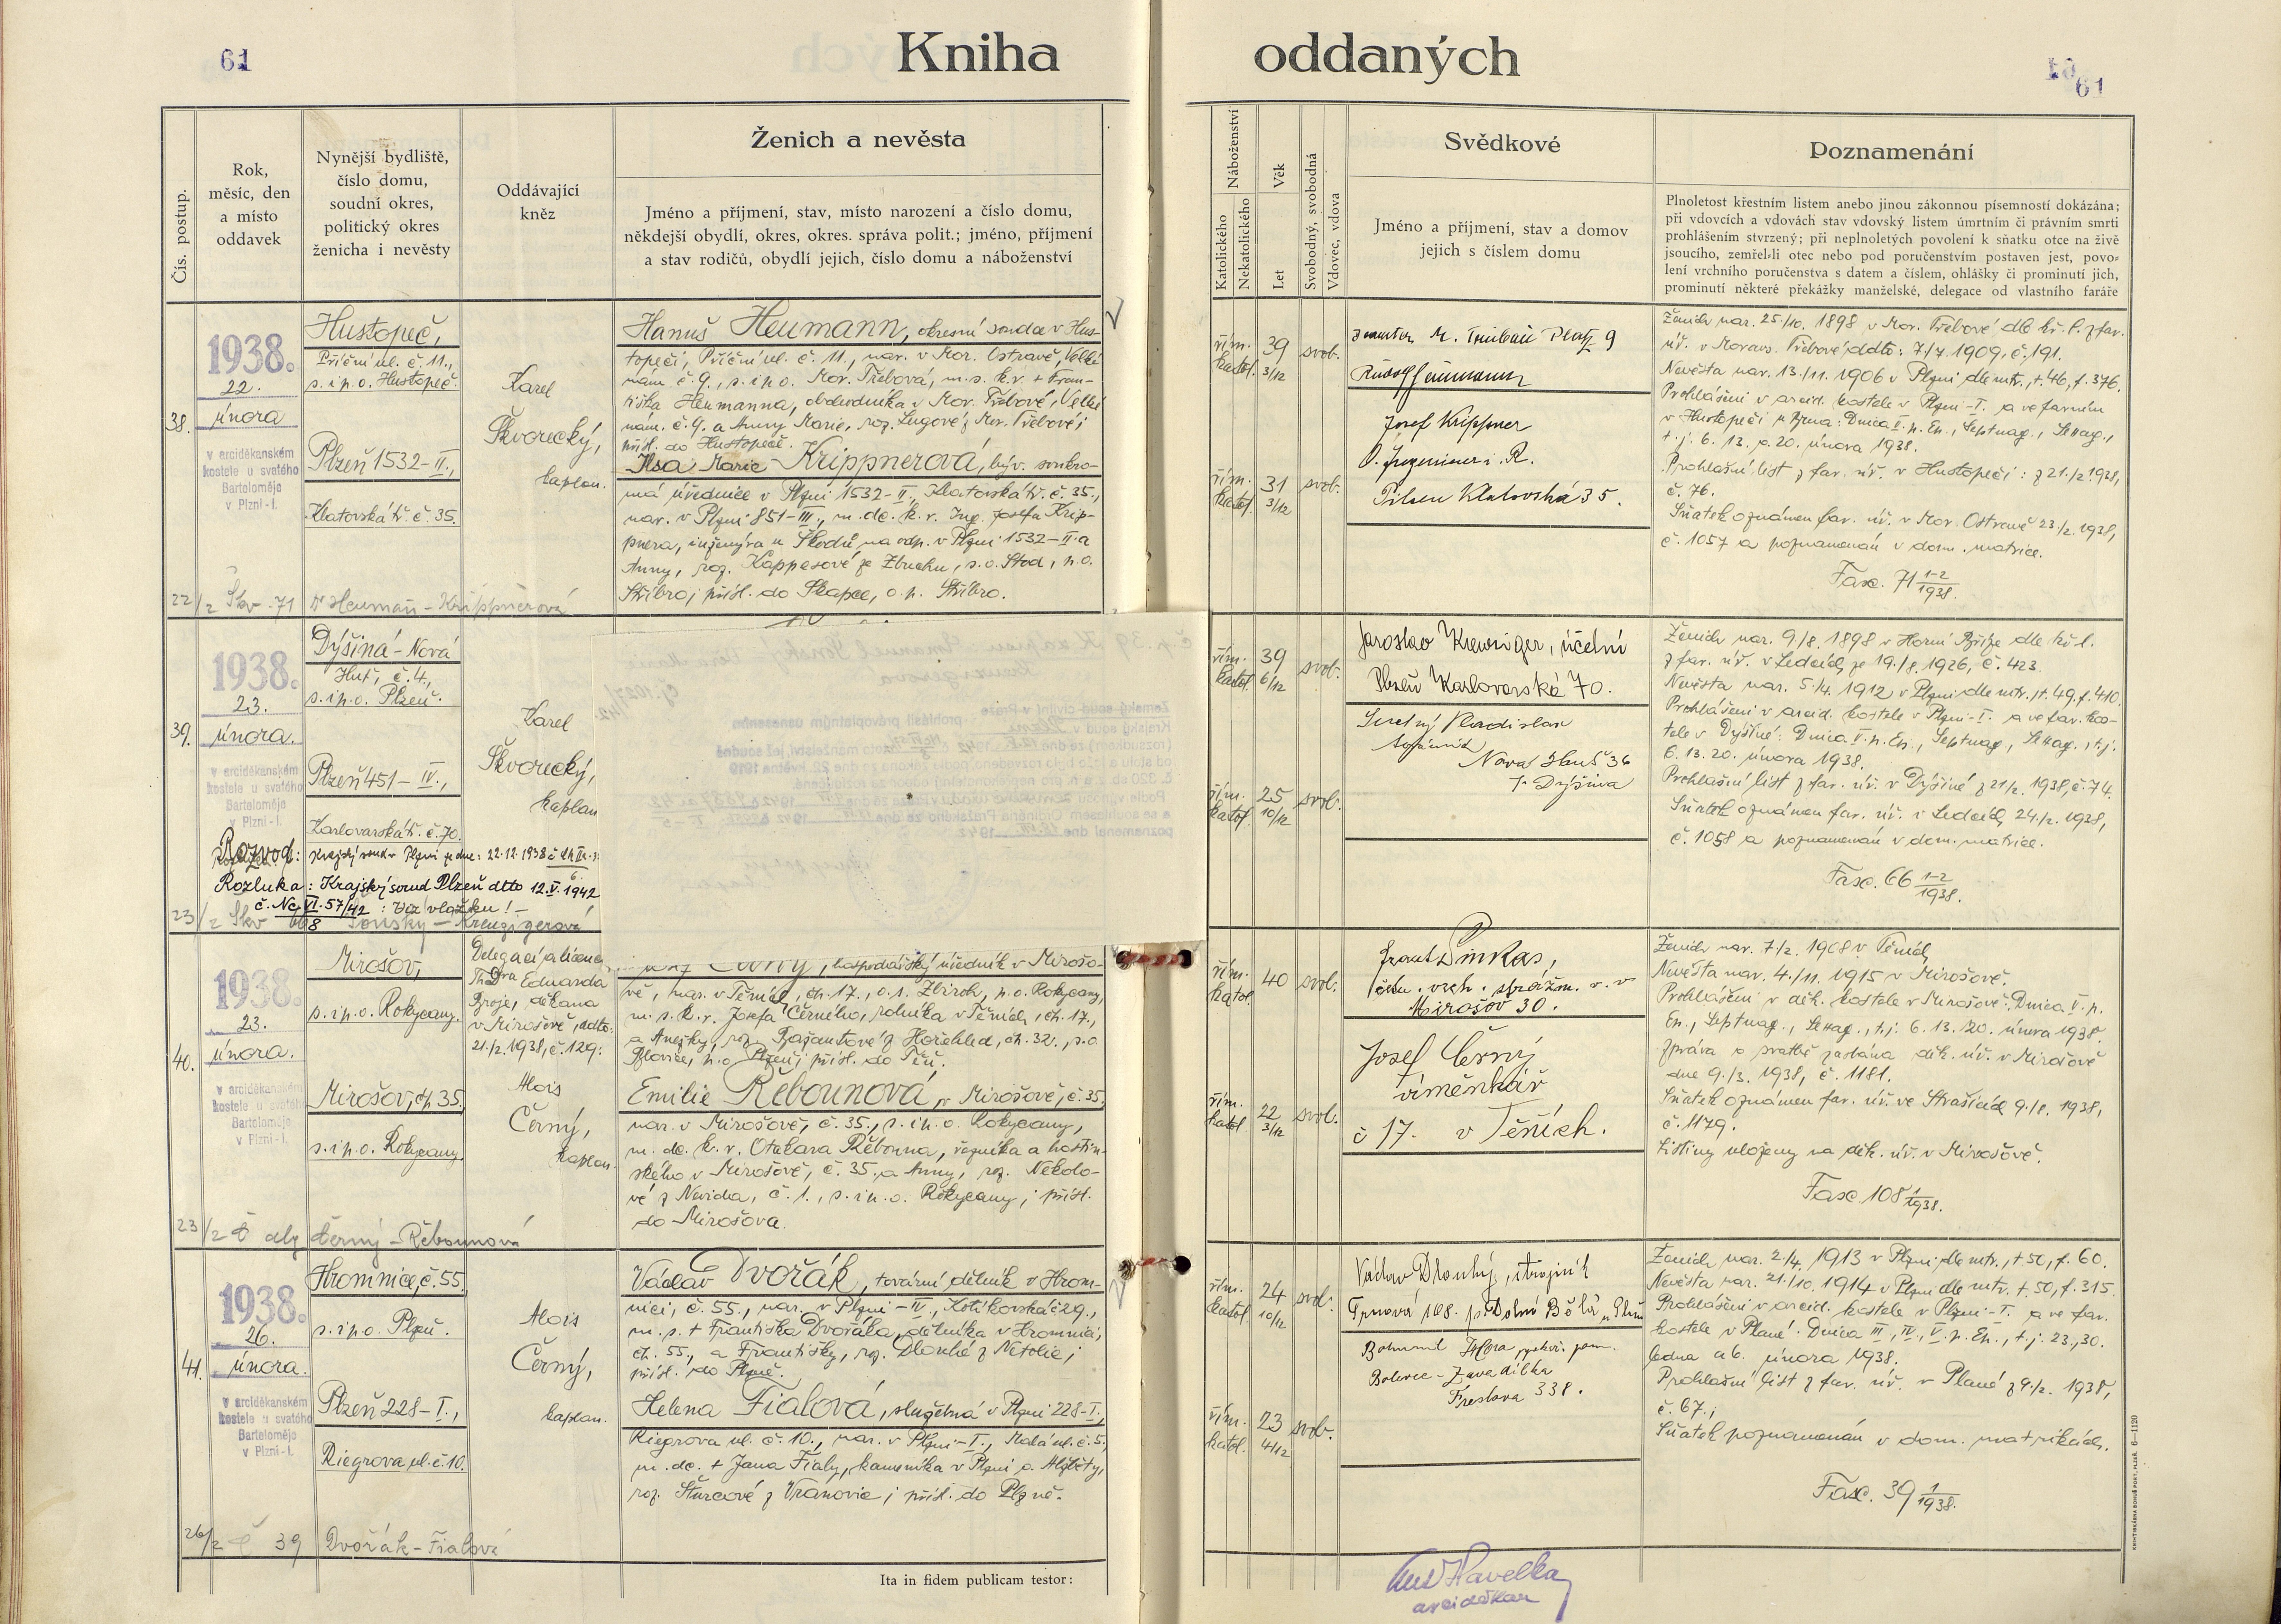 61
Kniha oddaných
61
Čís. postup.
Rok,
měsíc, den
a místo
oddavek
Nynější bydliště,
číslo domu,
soudní okres,
politický okres
ženicha i nevěsty
Oddávající
kněz
Ženich a nevěsta
Jméno a příjmení, stav, místo narození a číslo domu,
někdejší obydlí, okres, okres. správa polit.; jméno, příjmení
a stav rodičů, obydlí jejich, číslo domu a náboženství
Náboženství
Katolického
Nekatolického
Věk
Let
Svobodný, svobodná
Vdovec, vdova
Svědkové
Jméno a příjmení, stav a domov
jejich s číslem domu
Poznamenání
Plnoletost křestním listem anebo jinou zákonnou písemností dokázána;
při vdovcích a vdovách stav vdovský listem úmrtním či právním smrti
prohlášením stvrzený; při neplnoletých povolení k sňatku otce na živě
jsoucího, zemřel-li otec nebo pod poručenstvím postaven jest, povo-
lení vrchního poručenstva s datem a číslem, ohlášky či prominutí jich,
prominutí některé překážky manželské, delegace od vlastního faráře
38.
1938.
22.
února
v arciděkanském
kostele u svatého
Bartoloměje
v Plzni-I.
Hustopeč,
Příční ul. č. 11.,
s. i p. o. Hustopeč.
Plzeň 1532-II.,
Klatovská tř. č. 35.
Karel
Škvorecký,
kaplan.
Hanuš Heumann, okresní soudce v Hus-
topeči, Příční ul. č. 11., nar. v Mor. Ostravě, Velké
nám. č. 9., s. i p. o. Mor. Třebová, m. s. k. v. + Fran-
tiška Heumanna, obchodníka v Mor. Třebové, Velké
nám. č. 9. a Anny Marie, roz. Langové z Mor. Třebové;
přísl. do Hustopeče.
Ilsa Marie Krippnerová, býv. soukro-
má úřednice v Plzni 1532-II., Klatovská tř. č. 35.,
nar. v Plzni 851-III., m. dc. k. v. Ing. Josefa Krip-
pnera, inženýra u Škodů, na odp. v Plzni 1532-II. a
Anny, roz. Kappesové ze Zbuchu, s. o. Stod, p. o.
Stříbro; přísl. do Skapce, o. p. Stříbro.
22/2 Škv. 71 Dr Heumann - Krippnerová
řím.
katol.
39
3/12
svob.
řím.
katol.
31
3/12
svob.
M. Trübau Platz 9
Rudolf Heumann
Josef Krippner
O. Ingenieur i. R.
Pilsen Klatovská 35.
Ženich nar. 25./10. 1898 v Mor. Třebové dle kř. l. z far.
úř. v Moravs. Třebové, ddto: 7./7. 1909, č. 191.
Nevěsta nar. 13./11. 1906 v Plzni dle mtr., t. 46, f. 376.
Prohlášeni v arcid. kostele v Plzni-I. a ve farním
v Hustopeči u Brna: Dnica V. p. Ep., Septuag., Sexag.,
t. j. 6. 13. a 20. února 1938.
Prohlašní list z far. úř. v Hustopeči: z 21./2. 1938,
č. 76.
Sňatek oznámen far. úř. v Mor. Ostravě 23./2. 1938,
č. 1057 a poznamenán v dom. matrice.
Fasc. 71 1-2/1938.
39.
1938.
23.
února.
v arciděkanském
kostele u svatého
Bartoloměje
v Plzni-I.
Dýšiná-Nová
Huť, č. 4.,
s. i p. o. Plzeň.
Plzeň 451-IV.,
Karlovarská tř. č. 70.
Karel
Škvorecký,
kaplan
Rozvod: Krajský soud v Plzni ze dne: 22.12.1938
Rozluka: Krajský soud Plzeň ddto 12.V.1942
č. Nc VI. 57/42: Viz vložku!
řím.
katol.
39
6/12
svob.
řím.
katol.
25
10/12
svob.
Jaroslav Kreuziger, účetní
Plzeň Karlovarská 70.
Vladislav
Nová Huť 36
p. Dýšina
Ženich nar. 9./8. 1898 v Horní Bříze dle kř. l.
z far. úř. v Ledcích ze 19./8. 1926, č. 423.
Nevěsta nar. 5./4. 1912 v Plzni dle mtr., t. 49, f. 410.
Prohlášeni v arcid. kostele v Plzni-I. a ve far. kos-
tele v Dýšině: Dnica V. p. Ep., Septuag., Sexag., t. j.
6. 13. 20. února 1938.
Prohlašní list z far. úř. v Dýšině z 21/2. 1938, č. 74.
Sňatek oznámen far. úř. v Ledcích 24./2. 1938,
č. 1058 a poznamenán v dom. matrice.
Fasc. 66 1-2/1938.
40.
1938.
23.
února.
v arciděkanském
kostele u svatého
Bartoloměje
v Plzni-I.
Mirošov,
s. i p. o. Rokycany.
Mirošov, čp. 35.
s. i p. o. Rokycany.
Delegací a licencí
ThDra Eduarda
Brože, děkana
v Mirošově, ddto:
21./2. 1938, č. 129:
Alois
Černý,
kaplan.
Černý, hospodářský úředník v Mirošo-
vě, nar. v Těních, čp. 17., o. s. Zbiroh, p. o. Rokycany,
m. s. k. v. Josefa Černého, rolníka v Těních, čp. 17.,
a Anežky, roz. Bažantové z Hořehled, čp. 32., s. o.
Blovice, p. o. Plzeň; přísl. do Těň.
Emilie Řebounová, v Mirošově, č. 35,
nar. v Mirošově, č. 35., s. i p. o. Rokycany,
m. dc. k. v. Otakara Řebouna, řezníka a hostin-
ského v Mirošově, č. 35. a Anny, roz. Nekolo-
vé z Nevida, č. 1., s. i p. o. Rokycany; přísl.
do Mirošova.
Černý - Řebounová
řím.
katol.
40
svob.
řím.
katol.
22
3/12
svob.
Frant. Šimkas,
Mirošov 30.
Josef Černý
výměnkář
č 17. v Těních.
Ženich nar. 7/2. 1908 v Těních,
Nevěsta nar. 4./11. 1915 v Mirošově.
Prohlášeni v děk. kostele v Mirošově: Dnica V. p.
Ep., Septuag., Sexag., t. j. 6. 13. 20. února 1938.
Zpráva o svatbě zaslána děk. úř. v Mirošově
dne 9./3. 1938, č. 1181.
Sňatek oznámen far. úř. ve Strašicích 9./3. 1938,
č. 1179.
Listiny uloženy na děk. úř. v Mirošově.
Fasc. 108 1/1938.
41.
1938.
26.
února.
v arciděkanském
kostele u svatého
Bartoloměje
v Plzni-I.
Hromnice, č. 55.
s. i p. o. Plzeň.
Plzeň 228-I.,
Riegrova ul. č. 10.
Alois
Černý,
kaplan.
Václav Dvořák, tovární dělník v Hrom-
nici, č. 55., nar. v Plzni-IV., Kotíkovská č. 29.,
m. s. + Františka Dvořáka, dělníka v Hromnici,
čp. 55., a Františky, roz. Dlouhé z Netolic;
přísl. do Plzně.
Helena Fialová, služebná v Plzni 228-I.,
Riegrova ul. č. 10., nar. v Plzni-I., Malá ul. č. 5.,
m. dc. + Jana Fialy, kameníka v Plzni a Alžběty,
roz. Šturcové z Vranovic; přísl. do Plzně.
26/2 Č 39 Dvořák - Fialová
řím.
katol.
24
10/12
svob.
řím.
katol.
23
4/12
svob.
Václav Dlouhý, strojník
Trnová 168. p. Dolní Bělá u Plzně
Bohumil
Bolevec - Zavadilka
338.
Ženich nar. 2./4. 1913 v Plzni dle mtr., t. 50, f. 60.
Nevěsta nar. 21./10. 1914 v Plzni dle mtr. t. 50, f. 315.
Prohlášeni v arcid. kostele v Plzni-I. a ve far.
kostele v Plané: Dnica III., IV., V. p. Ep., t. j. 23., 30.
ledna a 6. února 1938.
Prohlašní list z far. úř. v Plané z 9./2. 1938,
č. 67.;
Sňatek poznamenán v dom. matrikách.
Fasc. 39 1/1938.
Ita in fidem publicam testor:
Havelka
arciděkan
KNIHTISKÁRNA BOHUŠ PORT, PLZEŇ. 6-1120